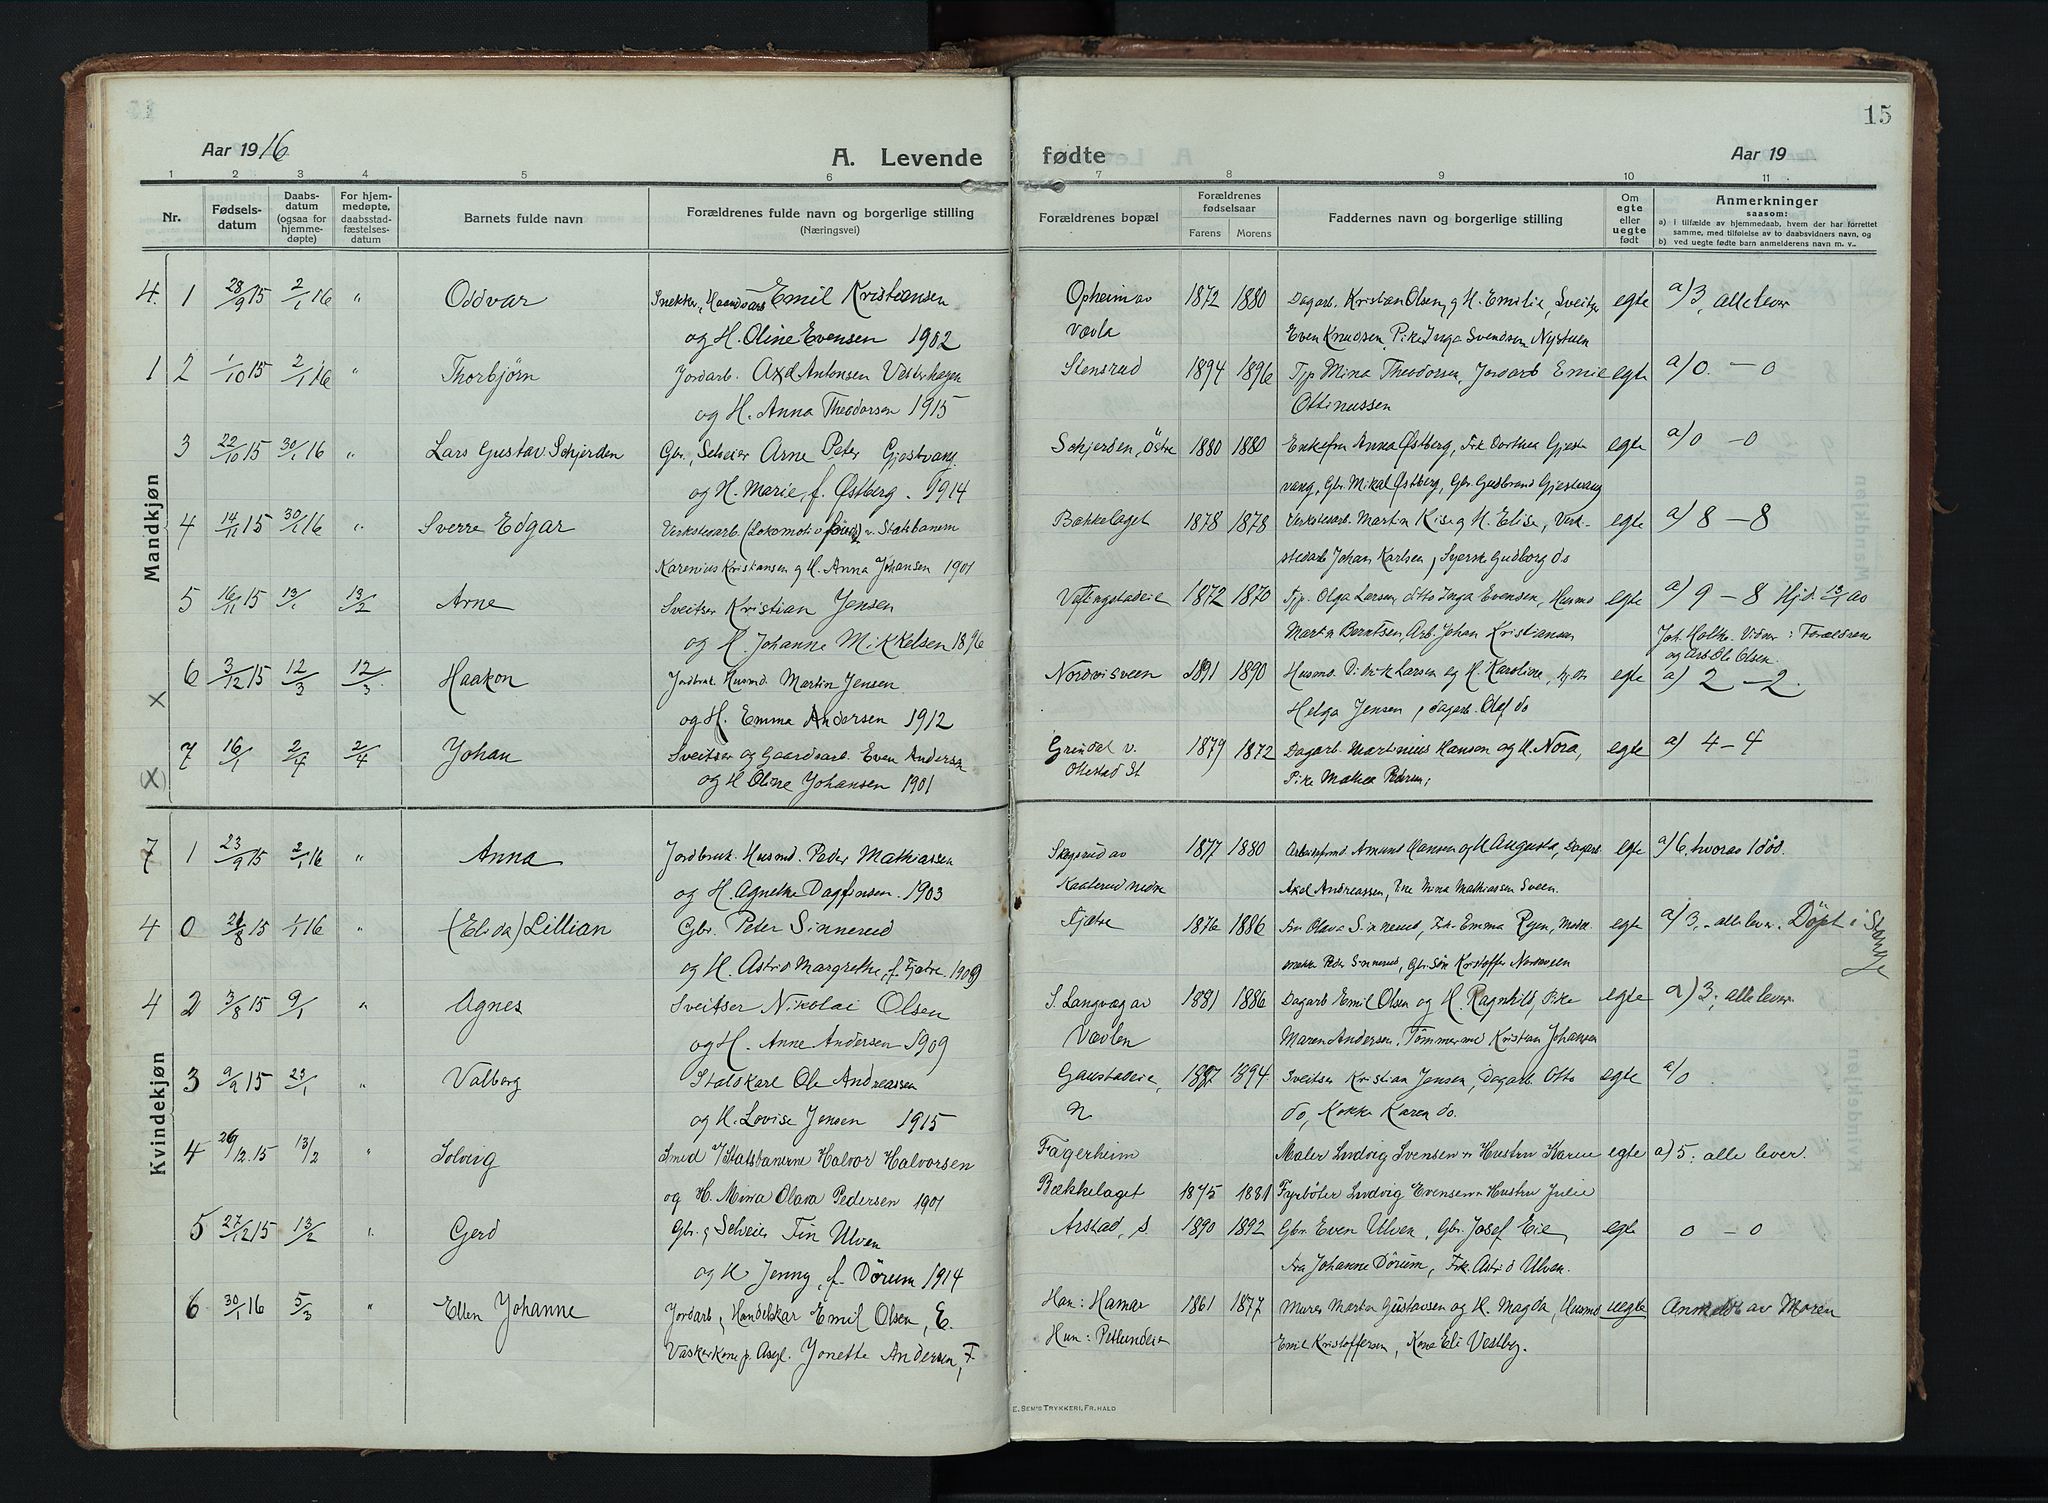 15
Aar 1916
A. Levende fødte
Aar 19
1 2 3 4 5 6 7 8 9 10 11
Nr.
Fødsels-
datum
Daabs-
datum
(ogsaa for
hjemme-
døpte)
For hjem-
medøpte,
daabsstad-
fæstelses-
datum
Barnets fulde navn
Forældrenes fulde navn og borgerlige stilling
(Næringsvei)
Forældrenes bopæl
Forældrenes
fødselsaar
Farens Morens
Faddernes navn og borgerlige stilling
Om
egte
eller
uegte
født
Anmerkninger
saasom:
a) i tilfælde av hjemmedaab, hvem der har forrettet
samme, med tilføielse av to daabsvidners navn, og
b) ved uegte fødte barn anmelderens navn m. v..
Mandkjøn
4. 1 28/9 15 2/1 16 " Oddvar Snekker, Haandværk Emil Kristiansen Opheim av 1872 1880 Dagarb. Kristian Olsen og H. Emilie, Sveitser egte a) 3, alle lever
og H. Oline Evensen 1902 Vævla Even Knudsen, Pike Inga Svendsen Nystuen
1 2 1/10 15 2/1 16 " Thorbjörn Jordarb. Axel Antonsen Vesterhagen Stensrud 1894 1896 Tjp. Mina Theodorsen, Jordarb Emil egte a) 0 — 0
og H. Anna Theodorsen 1915 Ottinussen
3 22/10 15 30/1 16 " Lars Gustav Schjerden Gbr., Selveier Arne Peter Gjestvang Schjerden, Östre 1880 1880 Enkefru Anna Østberg, Frk Dorthea Gjest- egte a) 0 — 0
og H. Marie, f. Østberg. 1914 vang, Gbr. Mikal Østberg, Gbr. Gudbrand Gjestvang
4 14/11 15 30/1 16 " Sverre Edgar Verkstedarb. (Lokomotiv) v. Statsbanern Bækkelaget 1878 1878 Verkstedarb. Martin Kise og H. Elise, Verk- egte a) 8 — 8
Karenius Kristiansen og H. Anna Johansen 1901 stedarb Johan Karlsen, Syerske Gudborg do
5 16/11 15 13/1 13/2 Arne Sveitser Kristian Jensen 1872 1870 Tjp. Olga Larsen, ditto Inga Evensen, Husmd egte a) 9 — 8 Hjd. 13/1 av
og H. Johanne Mikkelsen 1896 Martin Berntsen, Arb. Johan Kristiansen Joh. Holthe. Vidner: Forældrene
og Arb Ole Olsen.
X 6 3/12 15 12/3 12/3 Haakon Jordbruk. Husmd. Martin Jensen Nordvisveen 1891 1890 Husmd. Didrik Larsen og H. Karoline, egte a) 2 — 2.
og H. Emma Andersen 1912 Helga Jensen, dagarb. Olof do
(X) 7 16/1 2/4 2/4 Johan Sveitser og Gaardsarb. Even Andersen Grindal v. 1879 1872 Dagarb. Martinius Hansen og H. Nora, egte a) 4 — 4
og H Oline Johansen 1901 Ottestad St Pike Mathea
Kvindekjøn
7 1 23/9 15 2/1 16 " Anna Jordbruk. Husmd. Peder Mathiassen Skogsrud av 1877 1880 Amund Hansen og H Augusta, Dagarb. egte a) 6, hvorav 1 död.
og H. Agnethe Dagfinsen. 1903 Kaaterud nedre Axel Andreassen, Mina Mathiassen Sveen.
4 0 21/8 15 1/1 16 " (Elida) Lillian Gbr. Peter Sinnerud Fjetre 1876 1886 Fru Olava Sinnerud, Frk. Emma Ryen, egte a) 3, - alle lever. Döpt i Stange
og H. Astrid Margrethe, f. Fjetre 1909 Peder Sinnerud, Gbr. Sön Kristoffer Nordsveen
4 2 3/8 15 9/1 " Agnes Sveitser Nikolai Olsen S. Langvæg av 1881 1886 Dagarb Emil Olsen og H. Ragnhild, Pike egte a) 3; alle lever
og H. Anne Andersen 1909 Vævlen Maren Andersen, Tömmermd Kristian Johansen
3 9/9 15 23/1 " Valborg Staldkarl Ole Andreassen Gaustadeie, 1887 1894 Sveitser Kristian Jensen, Dagarb Otto egte a) 0
og H. Lovise Jensen 1915 N do, Kokke Karen do.
4 26/12. 15 13/2 " Solveig Smed v/Statsbanerne Halvor Halvorsen Fagerheim Maler Ludvig Svensen Hustru Karen egte a) 5: alle lever.
og H. Mina Olava Pedersen 1901 Bækkelaget 1875 1881 Fyrböter Ludvig Evensen Hustru Julie
5 27/12 15 13/2 " Gerd Gbr. og Selveier Fin Ulven Arstad, s. 1890 1892 Gbr. Even Ulven, Gbr. Josef Eie, egte 0 — 0
og H Jenny, f. Dörum 1914 Fru Johanne Dörum, Frk. Astrid Ulven.
6 30/1 16 5/3 " Ellen Johanne Jordarb., Handelskar Emil Olsen, E. Han: Hamar 1861 1877 Murer Martin Gustavsen og H. Magda, Husmd uegte Anmeldt av Moren
Vaskerkone p. Asyl. Jonette Andersen, F. Hun: Petlundeie Emil Kristoffersen, Kone Eli Vestby.
E. SEM'S TRYKKERI, FR. HALD